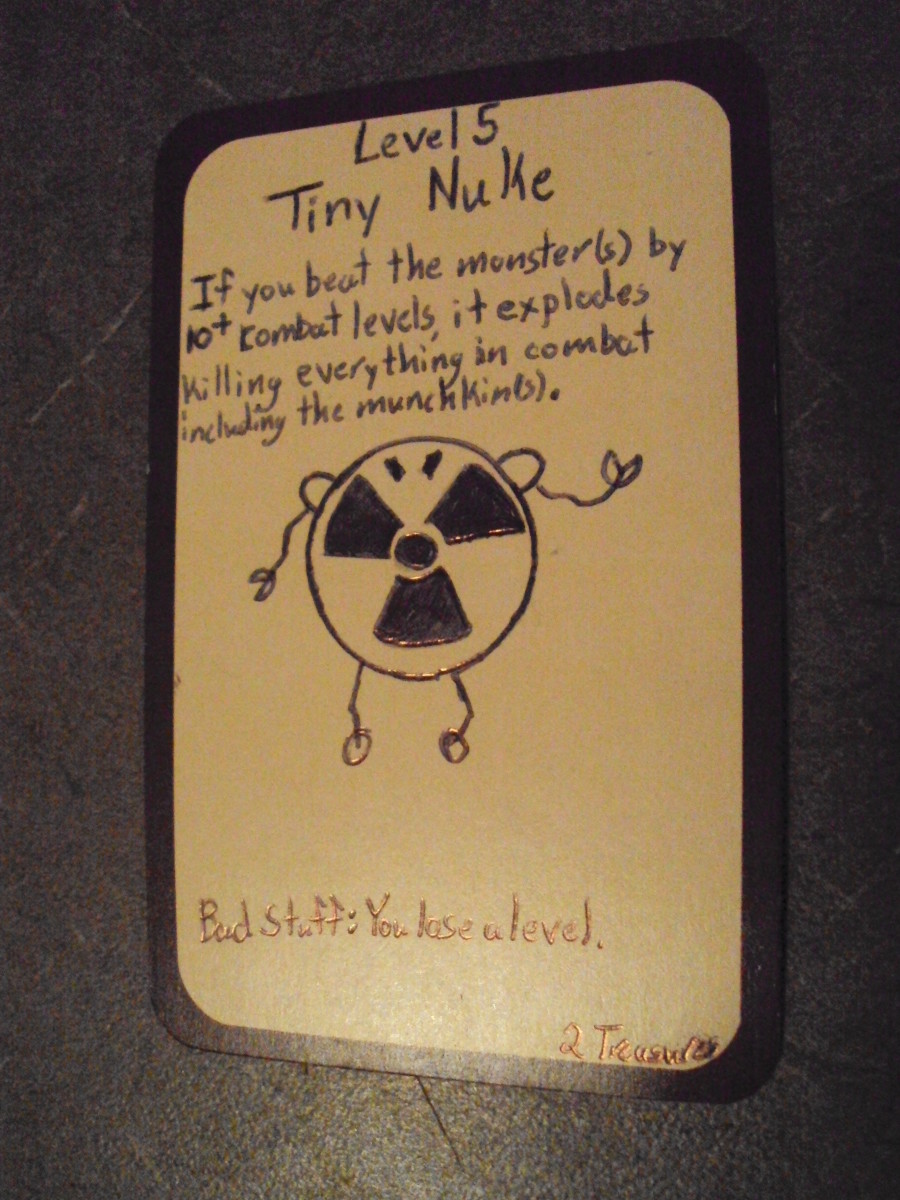 Level 5
Tiny Nuke
If you beat the monster(s) by
10+ combat levels, it explodes
killing everything in combat
including the munchkin(s).
Bad Stuff: You lose a level.
2 Treasures